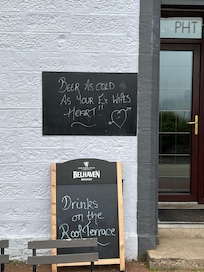 PHT
BEER AS COLD
AS YOUR EX WIFES
HEART!!
BELHAVEN
Drinks
on the
Roof Terrace